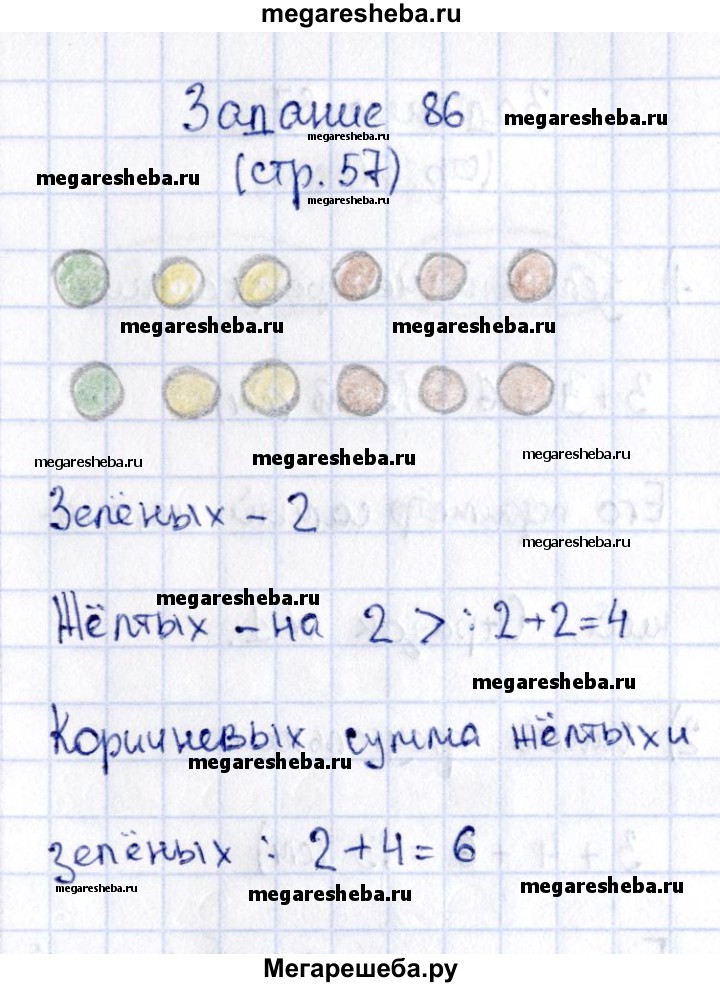 megaresheba.ru
Задание 86
megaresheba.ru
megaresheba.ru
megaresheba.ru
(стр. 57)
megaresheba.ru
megaresheba.ru megaresheba.ru
megaresheba.ru megaresheba.ru megaresheba.ru
Зелёных - 2
megaresheba.ru
megaresheba.ru
Жёлтых - на 2 > : 2+2=4
megaresheba.ru
Коричневых сумма жёлтых и
megaresheba.ru
зелёных : 2+4=6
megaresheba.ru megaresheba.ru
Мегарешеба.ру